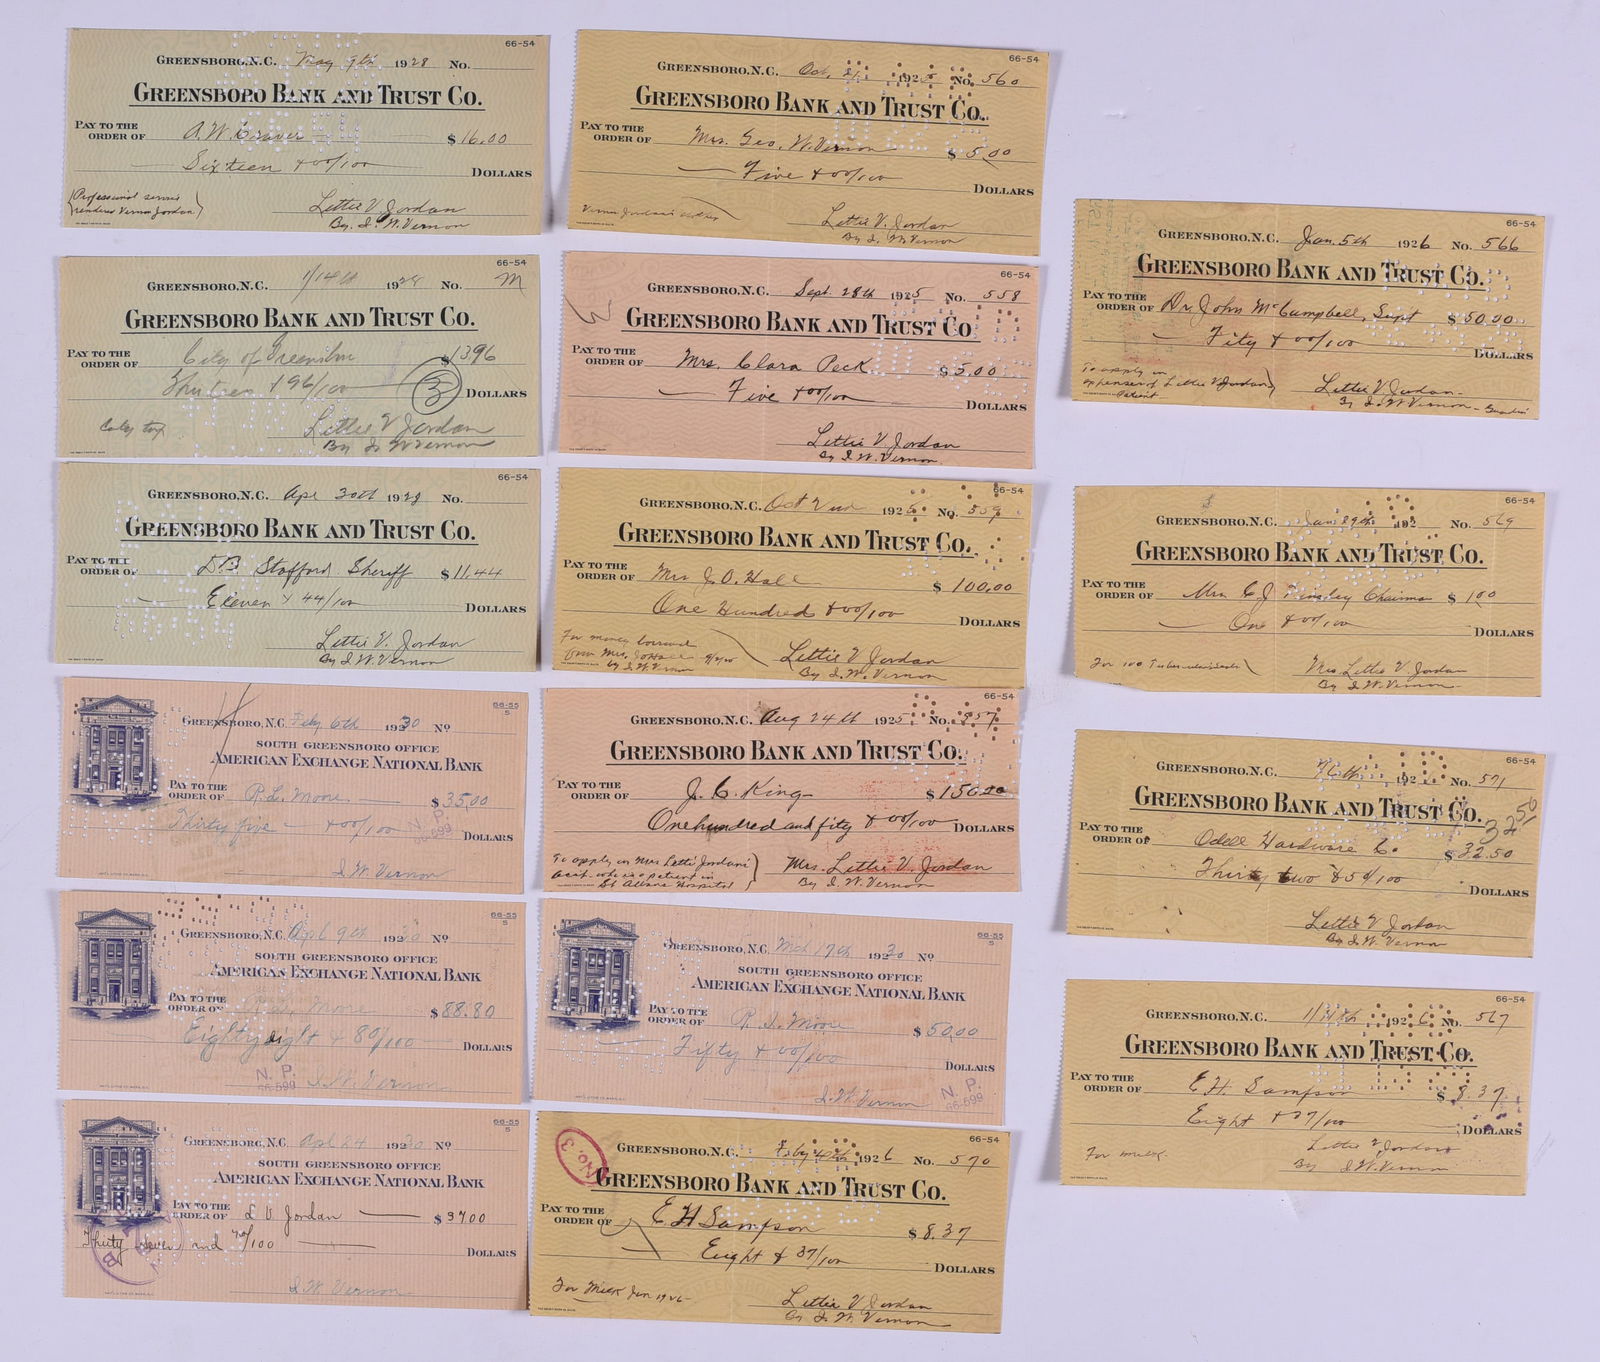 66-54
GREENSBORO, N.C. May 9th 1928 No.
GREENSBORO BANK AND TRUST CO.
PAY TO THE
ORDER OF A.W. Craver $16.00
Sixteen + 00/100 DOLLARS
(Professional services
renderes Vernon Jordan)
Lettie V. Jordan
By. I. W. Vernon
66-54
GREENSBORO, N.C. 1/14th 192 No. M
GREENSBORO BANK AND TRUST CO.
PAY TO THE
ORDER OF City of Greensboro $1396
Thirteen + 96/100 3 DOLLARS
City tax
Lettie V Jordan
By I. W Vernon
66-54
GREENSBORO, N.C. Apr 30th 1928 No.
GREENSBORO BANK AND TRUST CO.
PAY TO THE
ORDER OF DB Stafford Sheriff $11.44
Eleven + 44/100 DOLLARS
Lettie V. Jordan
By I. W. Vernon
66-55
5
GREENSBORO, N.C. Feby 6th 1930 No
SOUTH GREENSBORO OFFICE
AMERICAN EXCHANGE NATIONAL BANK
PAY TO THE
ORDER OF R. L. Moore $35.00
Thirty five + 00/100 DOLLARS
N. P.
66-599
I. W. Vernon
66-55
5
GREENSBORO, N.C. Apl 9th 1930 No
SOUTH GREENSBORO OFFICE
AMERICAN EXCHANGE NATIONAL BANK
PAY TO THE
ORDER OF Moore $88.80
Eighty eight + 80/100 DOLLARS
N. P.
66-599
I. W. Vernon
66-55
5
GREENSBORO, N.C. Apl 24 1930 No
SOUTH GREENSBORO OFFICE
AMERICAN EXCHANGE NATIONAL BANK
PAY TO THE
ORDER OF L V Jordan $3700
Thirty Seven and no/100 DOLLARS
I. W. Vernon
66-54
GREENSBORO, N.C. Oct. 21 1925 No. 560
GREENSBORO BANK AND TRUST CO.
PAY TO THE
ORDER OF Mrs. Geo. W. Vernon $5.00
Five + 00/100 DOLLARS
Lettie V. Jordan
By I. W. Vernon
66-54
GREENSBORO, N.C. Sept. 28th 1925 No. 558
GREENSBORO BANK AND TRUST CO
PAY TO THE
ORDER OF Mrs. Clara Peck $5.00
Five + 00/100 DOLLARS
Lettie V. Jordan
By I. W. Vernon.
66-54
GREENSBORO, N.C. Oct 2nd 1925 No. 559
GREENSBORO BANK AND TRUST CO.
PAY TO THE
ORDER OF Mrs J. O. Hall $100.00
One Hundred + 00/100 DOLLARS
For money borrowed
from Mrs. J O Hall
by I. W. Vernon
Lettie V Jordan
By I. W. Vernon
66-54
GREENSBORO, N.C. Aug 24th 1925 No. 557
GREENSBORO BANK AND TRUST CO.
PAY TO THE
ORDER OF J. C. King $150.00
One hundred and fifty + 00/100 DOLLARS
To apply on Mrs Lettie Jordans
acct. who is a patient in
St Albans Hospital
Mrs. Lettie V. Jordan
By I. W. Vernon
66-55
5
GREENSBORO, N.C. Mch 17th 1930 No
SOUTH GREENSBORO OFFICE
AMERICAN EXCHANGE NATIONAL BANK
PAY TO THE
ORDER OF R. L. Moore $50.00
Fifty + 00/100 DOLLARS
I. W. Vernon
N. P.
66-599
66-54
No. 3
GREENSBORO, N.C. Feby 4th 1926 No. 570
GREENSBORO BANK AND TRUST CO.
PAY TO THE
ORDER OF E H Sampson $8.37
Eight + 37/100 DOLLARS
For Milk Jan 1926
Lettie V Jordan
By I. W. Vernon
66-54
GREENSBORO, N.C. Jan. 5th 1926 No. 566
GREENSBORO BANK AND TRUST CO.
PAY TO THE
ORDER OF Dr John McCampbell, Supt $50.00
Fifty + 00/100 DOLLARS
To apply on
expenses of Lettie V Jordan
Patient
Lettie V Jordan
By I. W. Vernon - Guardian
66-54
GREENSBORO, N.C. Jan 29th 192 No. 569
GREENSBORO BANK AND TRUST CO.
PAY TO THE
ORDER OF Mrs C J Tinsley Chairman $100
One + 00/100 DOLLARS
Mrs Lettie V Jordan
By I. W. Vernon
66-54
GREENSBORO, N.C. 192 No. 571
GREENSBORO BANK AND TRUST CO.
PAY TO THE
ORDER OF Odell Hardware Co $32.50
32 50
Thirty two + 50/100 DOLLARS
Lettie V Jordan
By I. W. Vernon
66-54
GREENSBORO, N.C. 1926 No. 567
GREENSBORO BANK AND TRUST CO.
PAY TO THE
ORDER OF E H. Sampson $8.37
Eight + 37/100 DOLLARS
For milk.
Lettie V Jordan
By I. W. Vernon